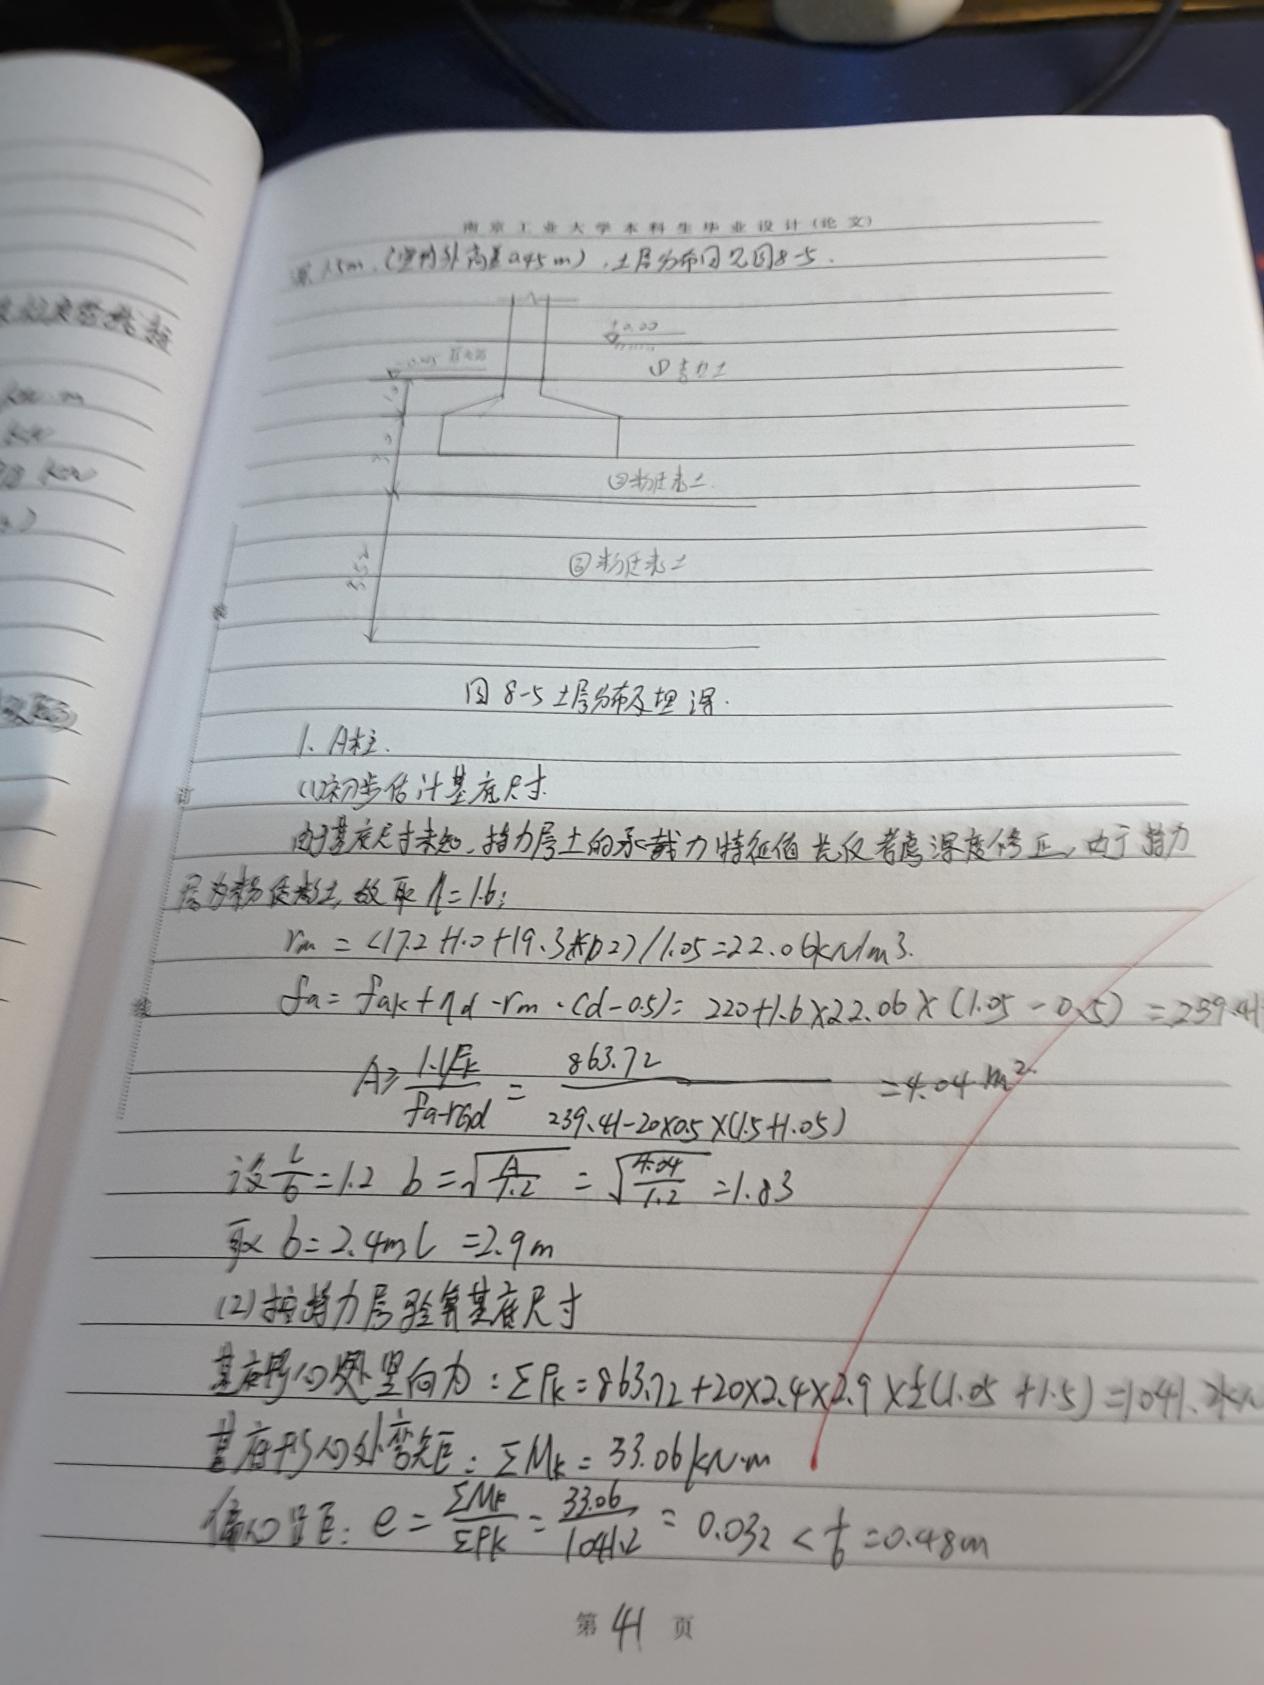 南京工业大学本科生毕业设计(论文)
深1.5m.(室内外高差0.45m),土层分布图见图8-5.
±0.00
①素力土
②粉质粘土.
③粉质粘土
图8-5土层分布及埋深.
1. A柱.
(1)初步估计基底尺寸.
由于基底尺寸未知,持力层土的承载力特征值先仅考虑深度修正,由于持力
层为粉质粘土,故取η=1.6;
rm = (17.2×1.0+19.3×0.2)/1.05=22.06kN/m3.
fa = fak+ηd·rm·(d-0.5)= 220+1.6×22.06×(1.05-0.5) =239.41
A≥ 1.1Fk/(fa-rGd) = 863.72/(239.41-20×0.5×(1.5+1.05)) =4.04m².
设 L/b=1.2 b=√(A/1.2) = √(4.04/1.2) =1.83
取 b=2.4m L=2.9m
(2)按持力层验算基底尺寸
基底形心处竖向力:ΣFk=863.72+20×2.4×2.9×½(1.05+1.5)=1041.2kN
基底形心处弯矩:ΣMk=33.06kN·m
偏心距:e=ΣMk/ΣFk=33.06/1041.2=0.032<l/6=0.48m
第 41 页
装
订
线